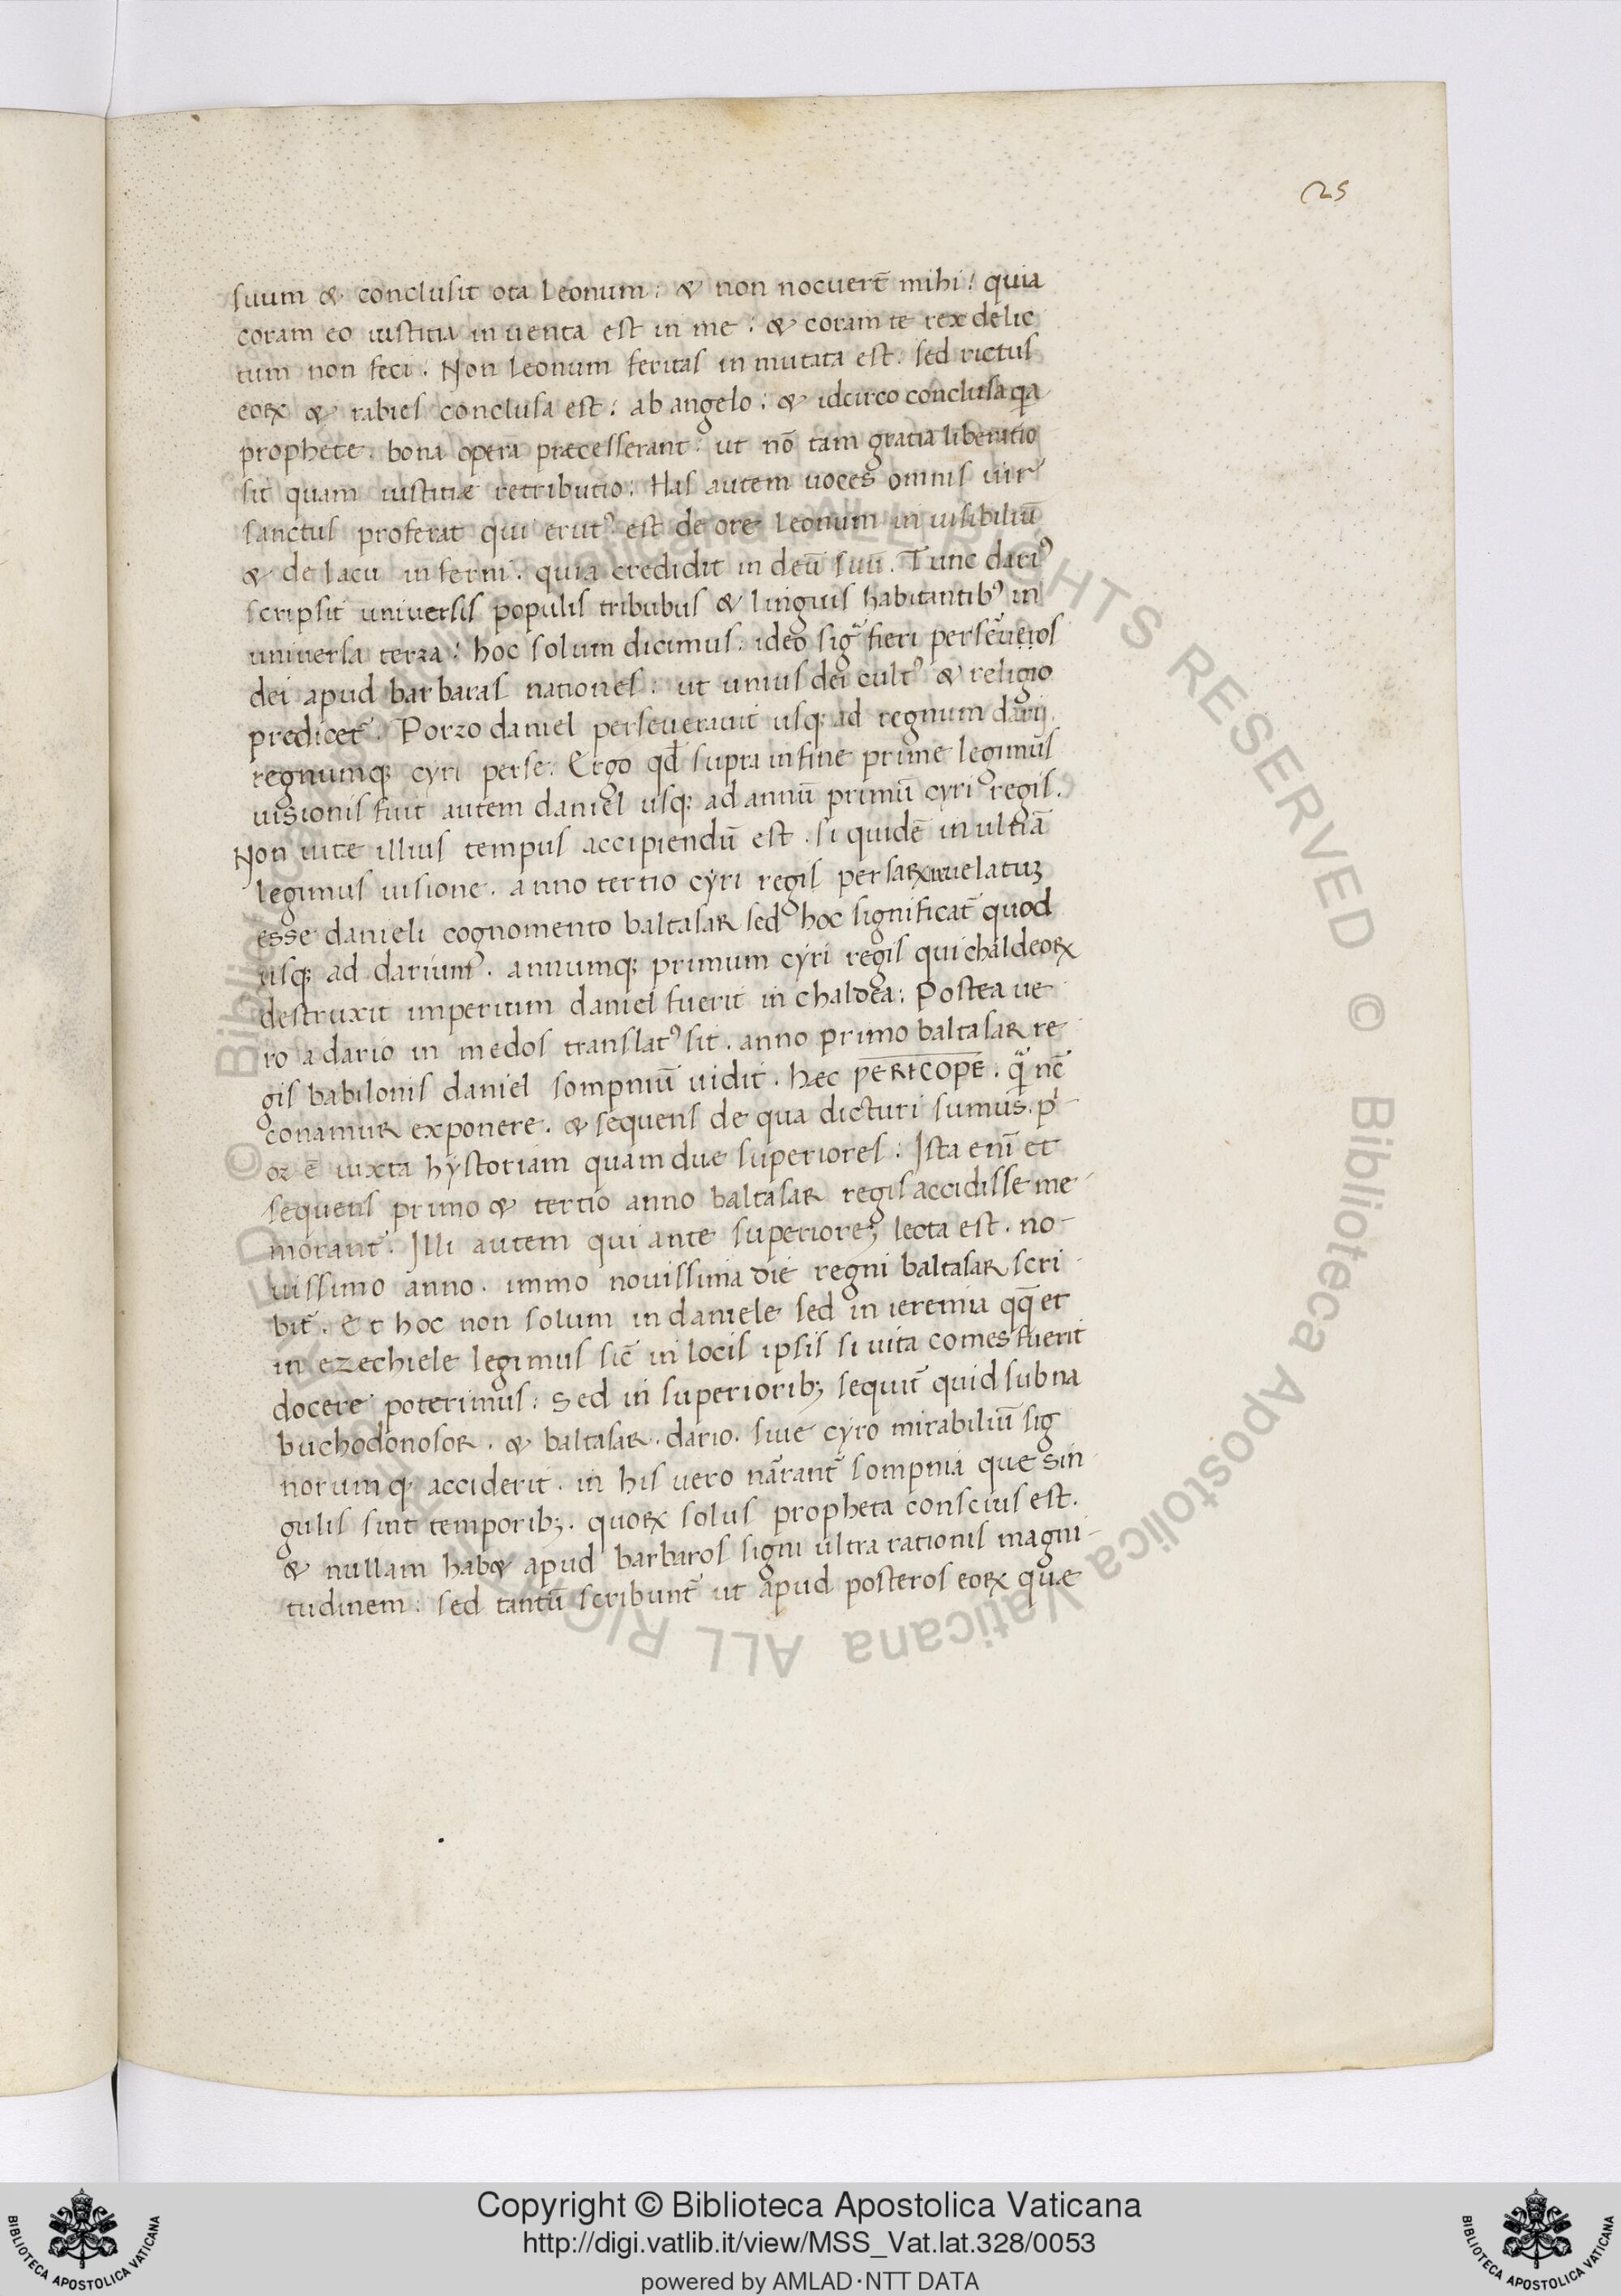 25
suum & conclusit ora leonum: & non nocuer̄t mihi: quia
coram eo iustitia inuenta est in me: & coram te rex delic
tum non feci. Non leonum feritas inmutata est. sed rictus
eoꝝ & rabies conclusa est: ab angelo: & idcirco conclusa qa
prophete. bona opera praecesserant: ut nō tam gratia liberatio
sit quam iustitiæ retributio: Has autem uoces omnis uir
sanctus proferat qui erutꝰ est de ore leonum inuisibiliū
& de lacu inferni. quia credidit in deū suū. Tunc dariꝰ
scripsit universis populis tribubus & linguis habitantibꝰ in
universa terra: hoc solum dicimus: ideo sigᵃ fieri per
dei apud barbaras nationes: ut unius dei cultꝰ & religio
predicet᷑. Porro daniel perseuerauit usqꝫ ad regnum darij
regnumqꝫ cyri perse. Ergo qđ supra in fine prime legimus
uisionis fuit autem daniel usqꝫ ad annū primū cyri regis.
Non uite illius tempus accipiendū est. si quidē in ultīa
legimus uisione. anno tertio cyri regis persaꝝ reuelatuꝫ
esse danieli cognomento baltasar sed hoc significat᷑ quod
usqꝫ ad darium. annumqꝫ primum cyri regis qui chaldeoꝝ
destruxit imperium daniel fuerit in chaldea: Postea ue
ro a dario in medos translatꝰ sit. anno primo baltasar re
gis babilonis daniel sompniū uidit. hæc PERICOPE. qᵃ nc̄
conamur exponere. & sequens de qua dicturi sumus. pⁱ
or ē iuxta hystoriam quam due superiores: Ista enī et
sequens primo & tertio anno baltasar regis accidisse me
morant᷑. Illi autem qui ante superioreꝫ lecta est. no
uissimo anno. immo nouissima die regni baltasar scri
bit᷑. Et hoc non solum in daniele sed in ieremia qq̄ et
in ezechiele legimus sic̄ in locis ipsis si uita comes fuerit
docere poterimus: Sed in superioribꝫ sequit᷑ quid sub na
buchodonosor. & baltasar. dario. siue cyro mirabiliū sig
norumqꝫ acciderit. in his uero nārant᷑ sompnia que sin
gulis sint temporibꝫ. quoꝝ solus propheta conscius est.
& nullam hab& apud barbaros signi ultra rationis magni
tudinem: sed tantū scribunt᷑ ut apud posteros eoꝝ quæ
Copyright © Biblioteca Apostolica Vaticana
http://digi.vatlib.it/view/MSS_Vat.lat.328/0053
powered by AMLAD·NTT DATA
BIBLIOTECA APOSTOLICA VATICANA
BIBLIOTECA APOSTOLICA VATICANA